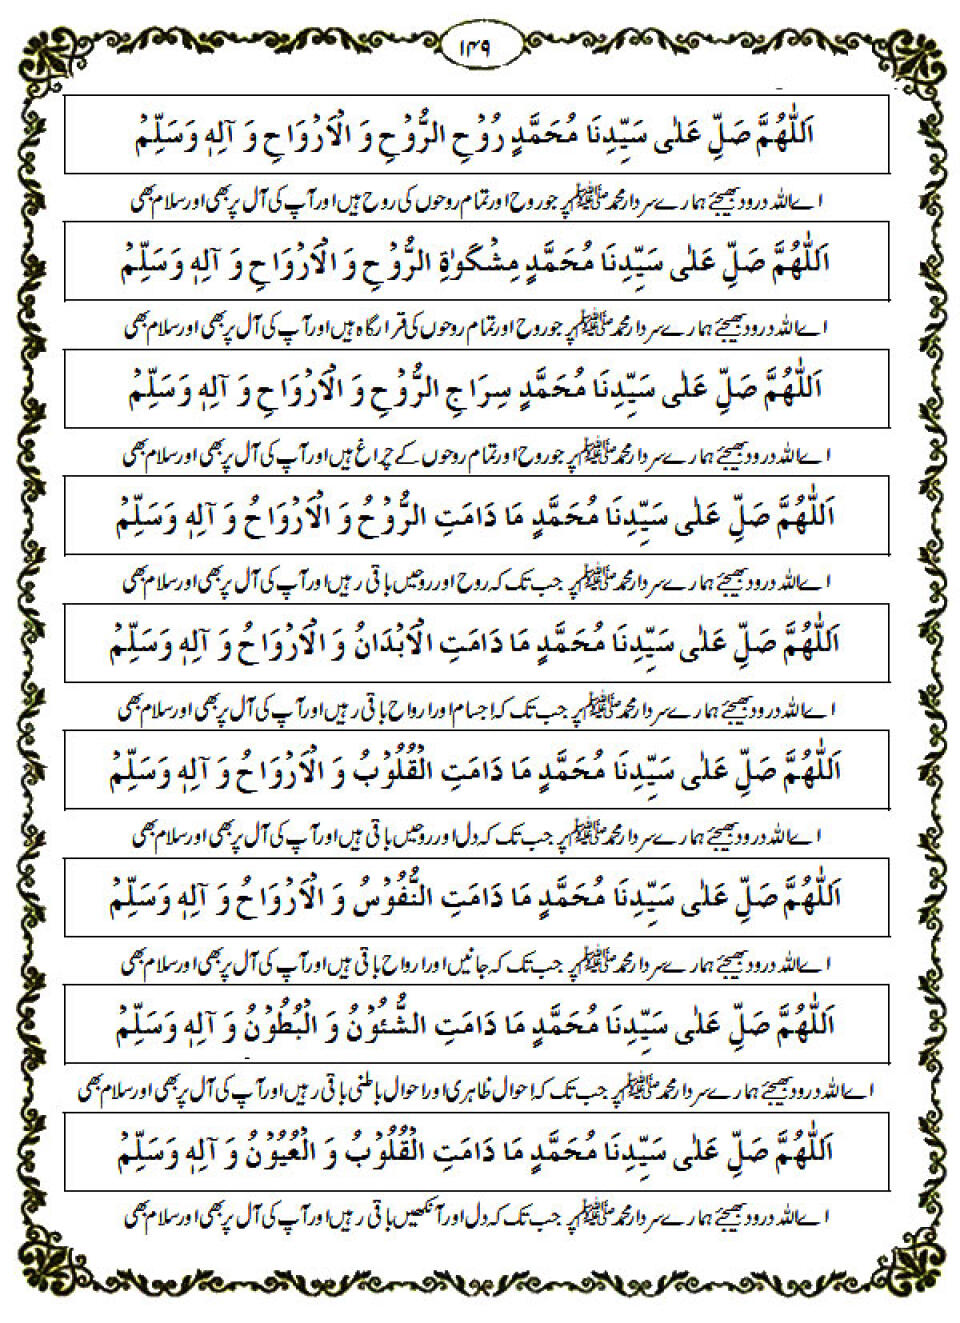 ۱۴۹
اَللّٰهُمَّ صَلِّ عَلٰى سَيِّدِنَا مُحَمَّدٍ رُوْحِ الرُّوْحِ وَ الْاَرْوَاحِ وَ آلِهٖ وَسَلِّمْ
اے اللہ درود بھیجئے ہمارے سردار محمد ﷺ پر جو روح اور تمام روحوں کی روح ہیں اور آپ کی آل پر بھی اور سلام بھی
اَللّٰهُمَّ صَلِّ عَلٰى سَيِّدِنَا مُحَمَّدٍ مِشْكَوٰةِ الرُّوْحِ وَ الْاَرْوَاحِ وَ آلِهٖ وَسَلِّمْ
اے اللہ درود بھیجئے ہمارے سردار محمد ﷺ پر جو روح اور تمام روحوں کی قرار گاہ ہیں اور آپ کی آل پر بھی اور سلام بھی
اَللّٰهُمَّ صَلِّ عَلٰى سَيِّدِنَا مُحَمَّدٍ سِرَاجِ الرُّوْحِ وَ الْاَرْوَاحِ وَ آلِهٖ وَسَلِّمْ
اے اللہ درود بھیجئے ہمارے سردار محمد ﷺ پر جو روح اور تمام روحوں کے چراغ ہیں اور آپ کی آل پر بھی اور سلام بھی
اَللّٰهُمَّ صَلِّ عَلٰى سَيِّدِنَا مُحَمَّدٍ مَا دَامَتِ الرُّوْحُ وَ الْاَرْوَاحُ وَ آلِهٖ وَسَلِّمْ
اے اللہ درود بھیجئے ہمارے سردار محمد ﷺ پر جب تک کہ روح اور روحیں باقی رہیں اور آپ کی آل پر بھی اور سلام بھی
اَللّٰهُمَّ صَلِّ عَلٰى سَيِّدِنَا مُحَمَّدٍ مَا دَامَتِ الْاَبْدَانُ وَ الْاَرْوَاحُ وَ آلِهٖ وَسَلِّمْ
اے اللہ درود بھیجئے ہمارے سردار محمد ﷺ پر جب تک کہ اجسام اور ارواح باقی رہیں اور آپ کی آل پر بھی اور سلام بھی
اَللّٰهُمَّ صَلِّ عَلٰى سَيِّدِنَا مُحَمَّدٍ مَا دَامَتِ الْقُلُوْبُ وَ الْاَرْوَاحُ وَ آلِهٖ وَسَلِّمْ
اے اللہ درود بھیجئے ہمارے سردار محمد ﷺ پر جب تک کہ دل اور روحیں باقی ہیں اور آپ کی آل پر بھی اور سلام بھی
اَللّٰهُمَّ صَلِّ عَلٰى سَيِّدِنَا مُحَمَّدٍ مَا دَامَتِ النُّفُوْسُ وَ الْاَرْوَاحُ وَ آلِهٖ وَسَلِّمْ
اے اللہ درود بھیجئے ہمارے سردار محمد ﷺ پر جب تک کہ جانیں اور ارواح باقی ہیں اور آپ کی آل پر بھی اور سلام بھی
اَللّٰهُمَّ صَلِّ عَلٰى سَيِّدِنَا مُحَمَّدٍ مَا دَامَتِ الشُّئُوْنُ وَ الْبُطُوْنُ وَ آلِهٖ وَسَلِّمْ
اے اللہ درود بھیجئے ہمارے سردار محمد ﷺ پر جب تک کہ احوال ظاہری اور احوال باطنی باقی رہیں اور آپ کی آل پر بھی اور سلام بھی
اَللّٰهُمَّ صَلِّ عَلٰى سَيِّدِنَا مُحَمَّدٍ مَا دَامَتِ الْقُلُوْبُ وَ الْعُيُوْنُ وَ آلِهٖ وَسَلِّمْ
اے اللہ درود بھیجئے ہمارے سردار محمد ﷺ پر جب تک کہ دل اور آنکھیں باقی رہیں اور آپ کی آل پر بھی اور سلام بھی